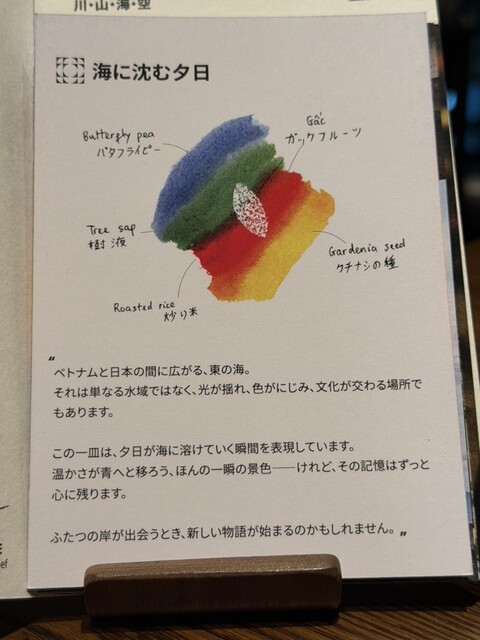 川・山・海・空
海に沈む夕日
Butterfly pea
バタフライピー
Gấc
ガックフルーツ
Tree sap
樹液
Gardenia seed
クチナシの種
Roasted rice
炒り米
"
ベトナムと日本の間に広がる、東の海。
それは単なる水域ではなく、光が揺れ、色がにじみ、文化が交わる場所で
もあります。
この一皿は、夕日が海に溶けていく瞬間を表現しています。
温かさが青へと移ろう、ほんの一瞬の景色――けれど、その記憶はずっと
心に残ります。
ふたつの岸が出会うとき、新しい物語が始まるのかもしれません。"